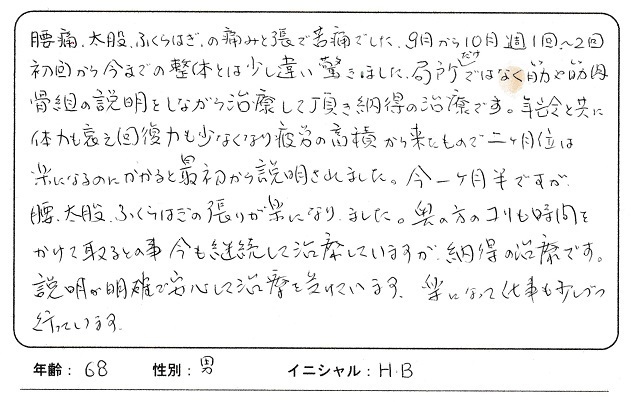 腰痛、太股、ふくらはぎ、の痛みと張で苦痛でした、9月から10月 週1回〜2回
初回から今までの整体とは少し違い驚きました、局所だけではなく筋や筋肉
骨組の説明をしながら治療して頂き納得の治療です。年齢と共に
体力も衰え回復力も少なくなり疲労の高積から来たもので二ヶ月位は
楽になるのにかかると最初から説明されました。今一ヶ月半ですが、
腰、太股、ふくらはぎの張りが楽になり、ました。奥の方のコリも時間を
かけて取るとの事 今も継続して治療していますが、納得の治療です。
説明が明確で安心して治療を受けています、楽になって仕事も少しづつ
行っています。
年齢：68　性別：男　イニシャル：H・B